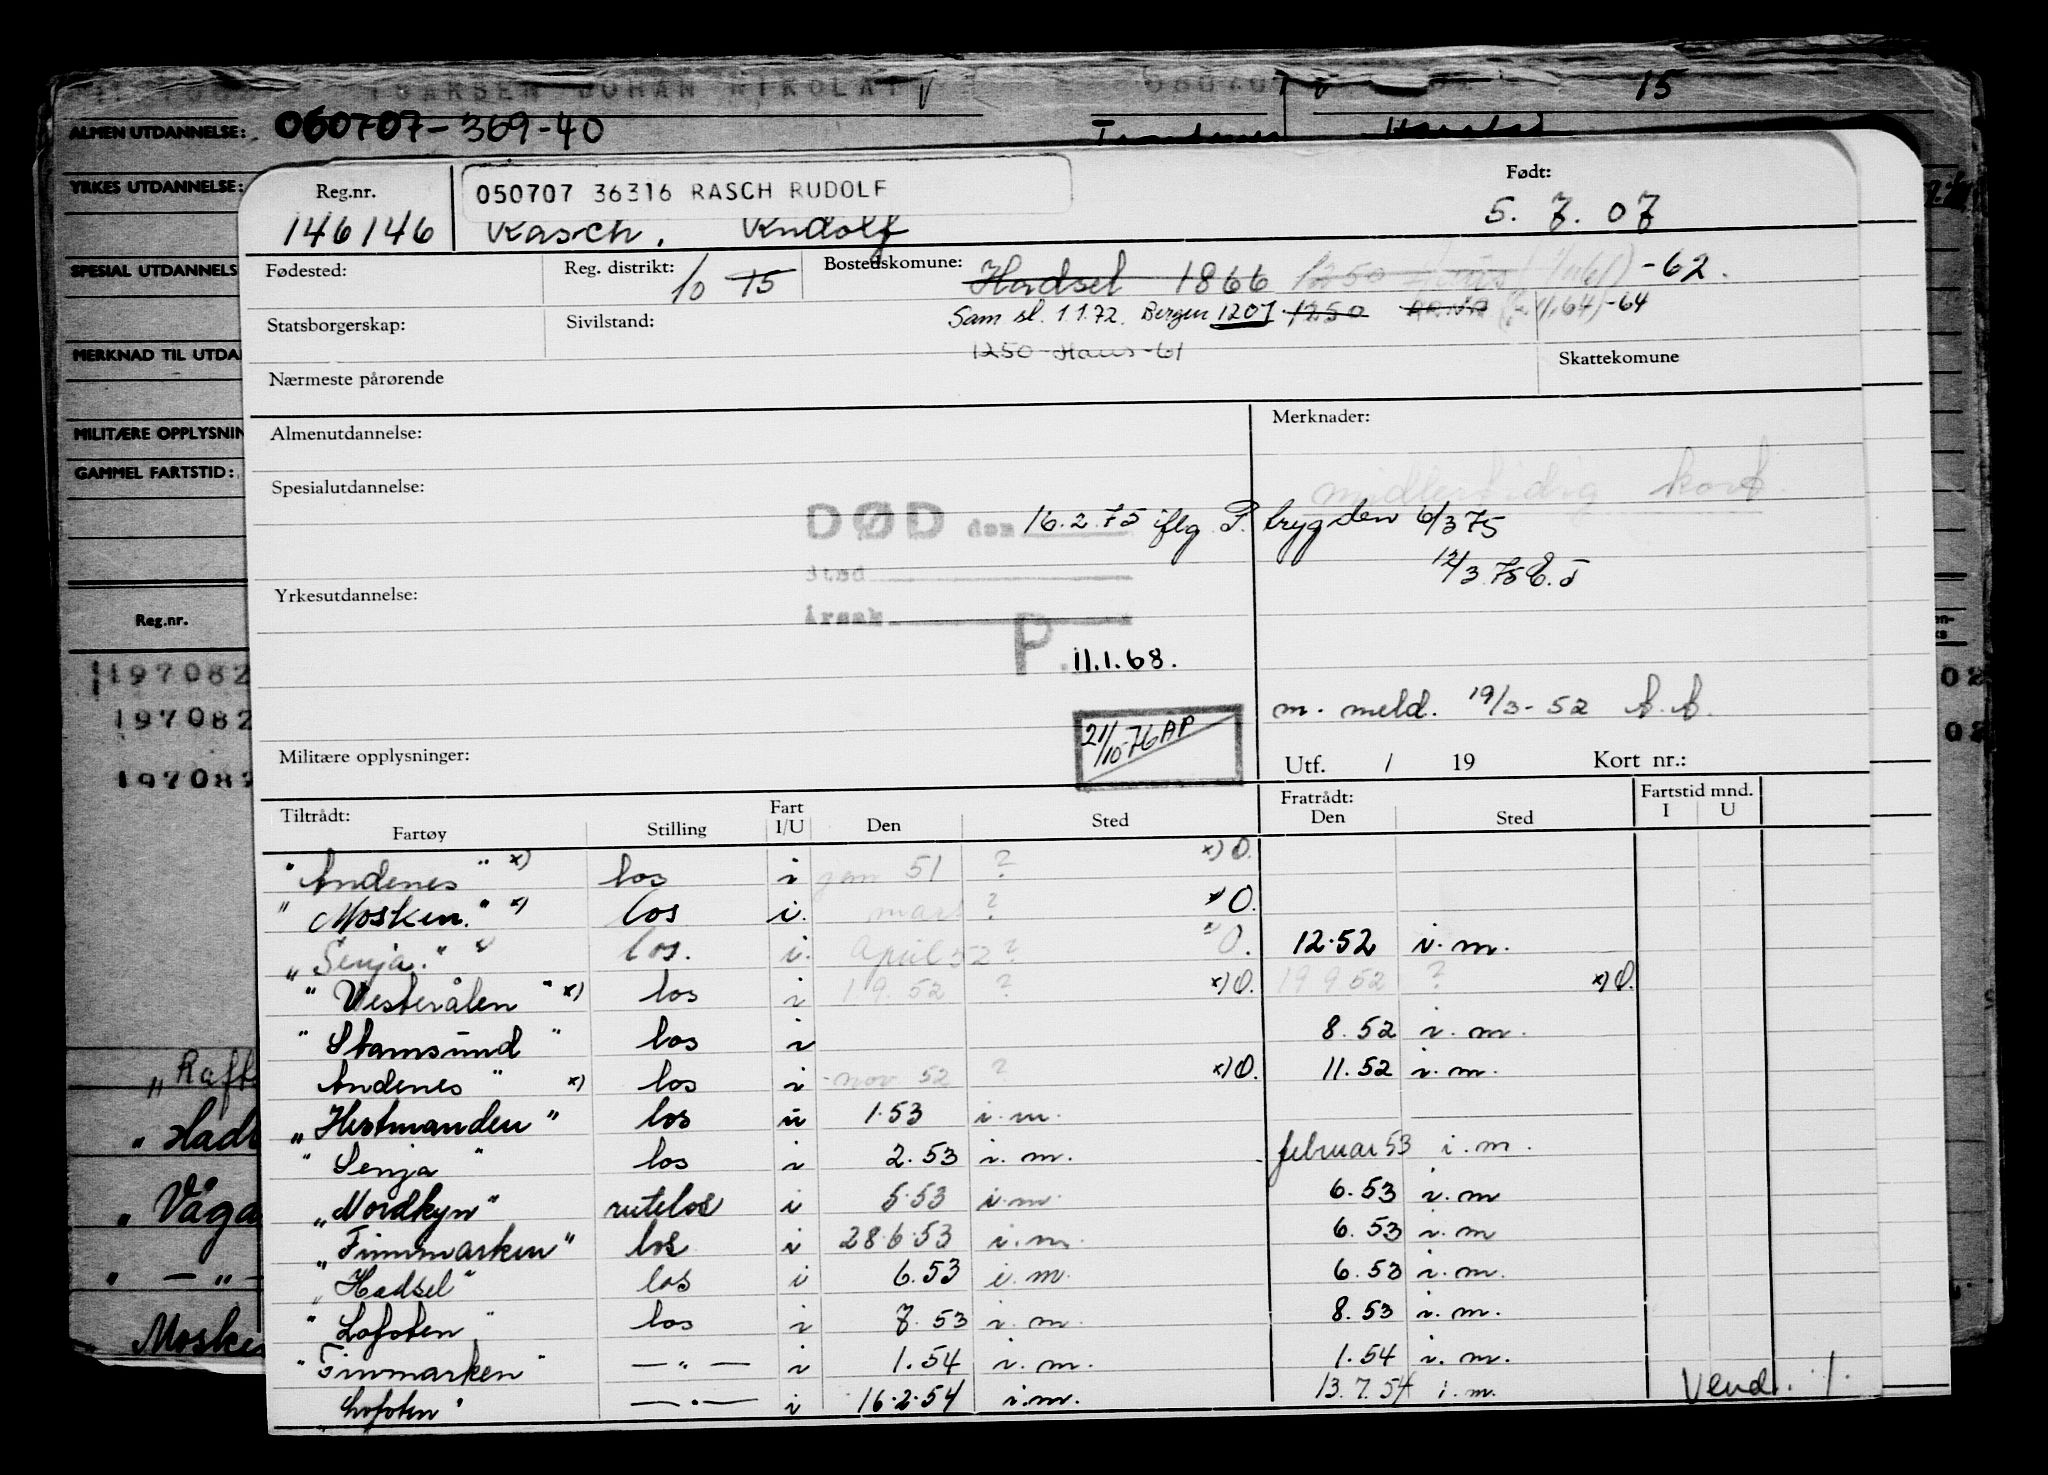 15
ALMEN UTDANNELSE: 060707-369-40
YRKES UTDANNELSE:
SPESIAL UTDANNELS
MERKNAD TIL UTDA
MILITÆRE OPPLYSNIN
GAMMEL FARTSTID:
Reg.nr.
197082
197082
197082
Reg.nr. 050707 36316 RASCH RUDOLF Født:
146146 Rasch, Rudolf 5. 7. 07
Fødested: Reg. distrikt: 10 15 Bostedskomune: Hadsel 1866 1250 -62.
Statsborgerskap: Sivilstand: Sam sl. 1.1.72. Bergen 1201 1250 ARNA -64
1250 Haus -61
Nærmeste pårørende Skattekomune
Almenutdannelse: Merknader:
midlertidig kort
Spesialutdannelse:
DØD den 16.2.75 iflg. P. trygden 6/3 75
Sted 12/3.75 E.T
Yrkesutdannelse:
Årsak
P. 11.1.68.
m. meld. 19/3-52 A.A.
21/10-76 AP
Militære opplysninger: Utf. / 19 Kort nr.:
Tiltrådt: Fratrådt: Fartstid mnd.
Fartøy Stilling Fart I/U Den Sted Den Sted I U
"Andenes" x) los i jan 51 ? x) O.
"Mosken." x) los i. mars ? x) O.
"Senja." x) los. i. April 52 ? O. 12.52 i. m.
"Vesterålen" x) los i 1.9.52 ? x) O. 19 9 52 ? x) O.
"Stamsund" los i 8.52 i. m.
Andenes" x) los i nov 52 ? x) O. 11.52 i. m.
"Hestmanden" los u 1.53 i. m.
"Senja" los i 2.53 i. m. februar 53 i. m.
"Nordkyn" rutelos i 5.53 i. m. 6.53 i. m
"Finnmarken" los i 28.6.53 i. m. 6.53 i. m
"Hadsel" los i 6.53 i. m. 6.53 i. m.
"Lofoten" los i 7.53 i. m. 8.53 i. m.
"Finmarken" — " — i 1.54 i. m. 1.54 i. m.
Lofoten" — " — i 16.2.54 i. m. 13.7.54 i. m.
Vend. /.
"Rafts
"Hads
"Våga
" — " —
Moske